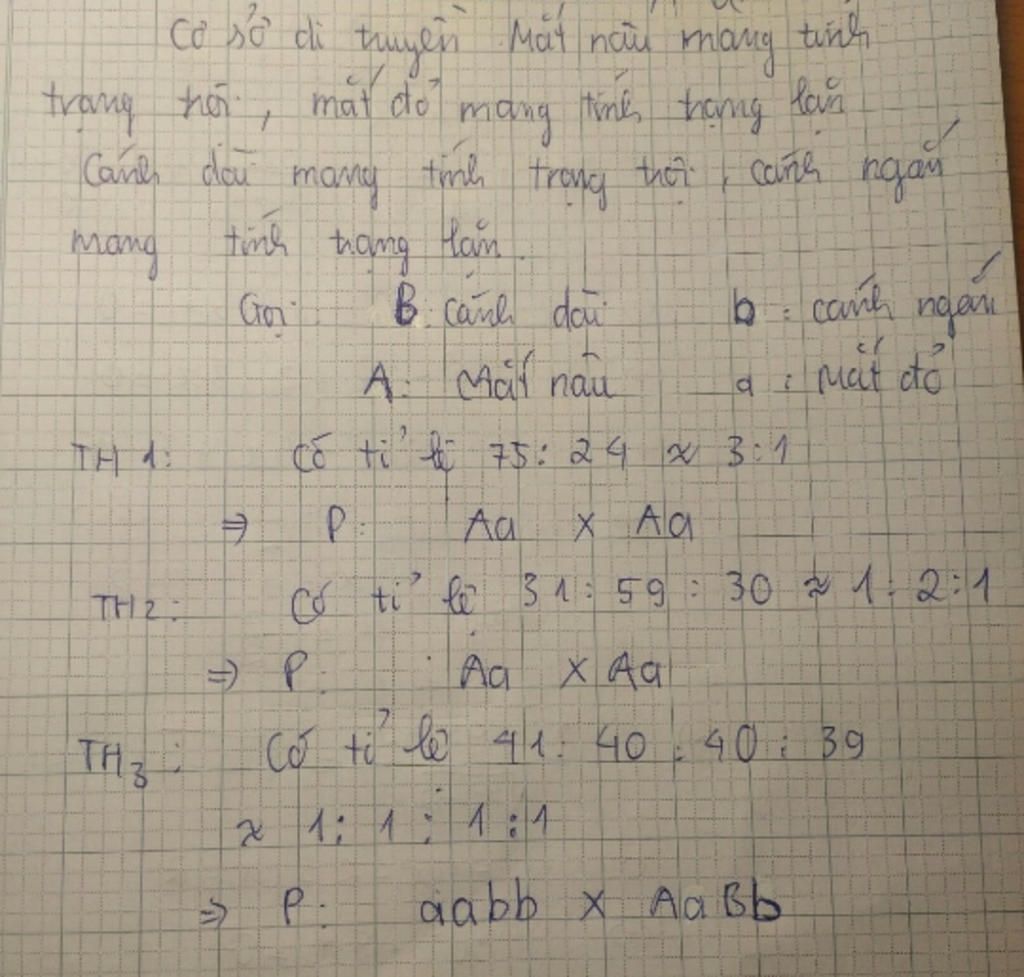 Cơ sở di truyền Mắt nâu mang tính
trạng trội, mắt đỏ mang tính trạng lặn
Cánh dài mang tính trạng trội, cánh ngắn
mang tính trạng lặn.
Gọi B: cánh dài b: cánh ngắn
A: Mắt nâu a: Mắt đỏ
TH 1: Có tỉ lệ 75: 24 ≈ 3:1
⇒ P: Aa x Aa
TH2: Có tỉ lệ 31: 59: 30 ≈ 1: 2:1
⇒ P: Aa x Aa
TH3: Có tỉ lệ 41: 40: 40: 39
≈ 1: 1: 1:1
⇒ P: aabb x AaBb